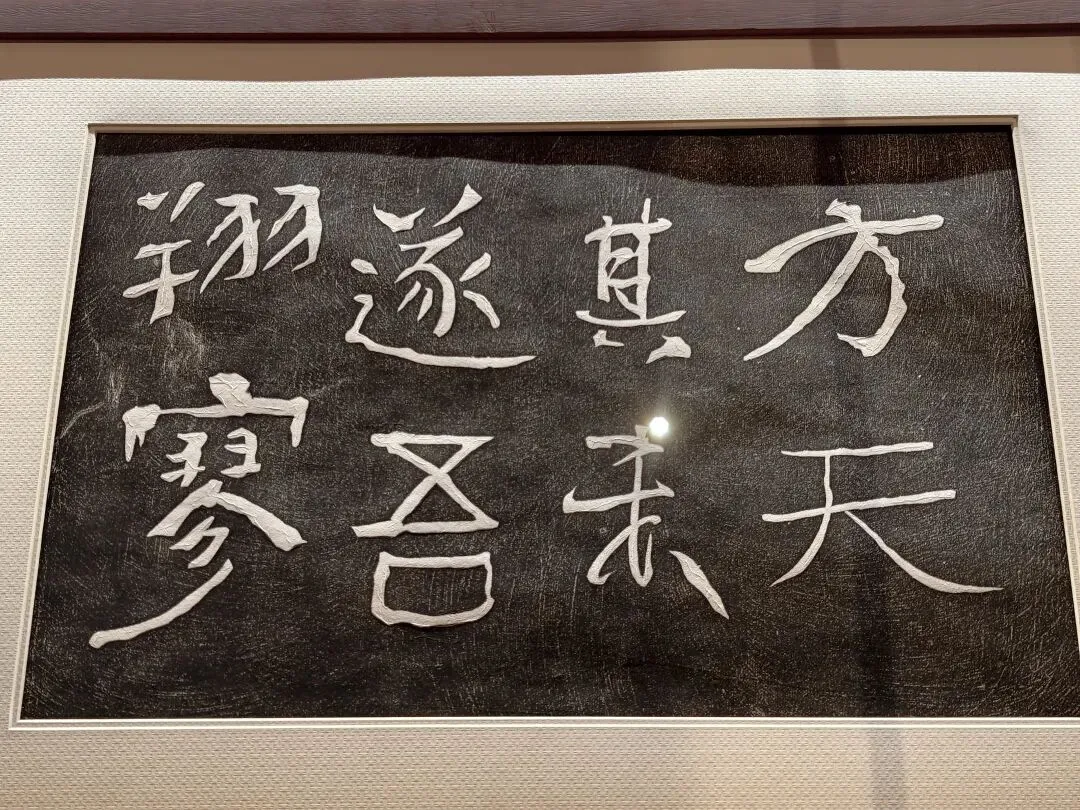 方天
其未
遂吾
翔寥